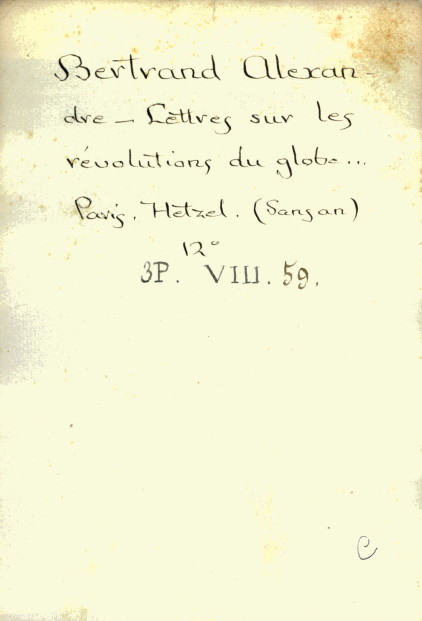 Bertrand Alexan-
dre - Lettres sur les
révolutions du globe...
Paris. Hetzel. (Sansan)
12°
3P. VIII. 59.
C